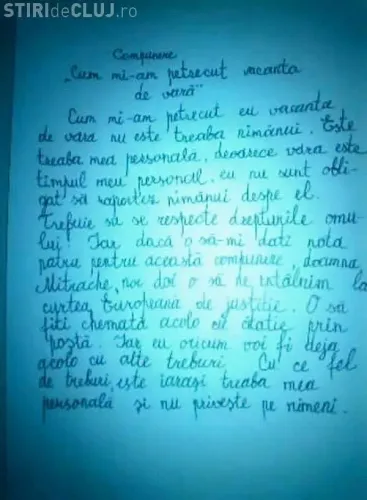 STIRIdeCLUJ.ro
Compunere
„Cum mi-am petrecut vacanta
de vară"
Cum mi-am petrecut eu vacanta
de vara nu este treaba nimănui. Este
treaba mea personală, deoarece vara este
timpul meu personal, eu nu sunt obli-
gat să raportez nimănui despre el.
Trebuie să se respecte drepturile omu-
lui! Iar dacă o să-mi dati nota
patru pentru această compunere, doamna
Mitrache, noi doi o să ne întâlnim la
curtea Europeană de justitie. O să
fiti chemată acolo cu citatie prin
postă. Iar eu oricum voi fi deja
acolo cu alte treburi. Cu ce fel
de treburi, este iarasi treaba mea
personală si nu priveste pe nimeni.